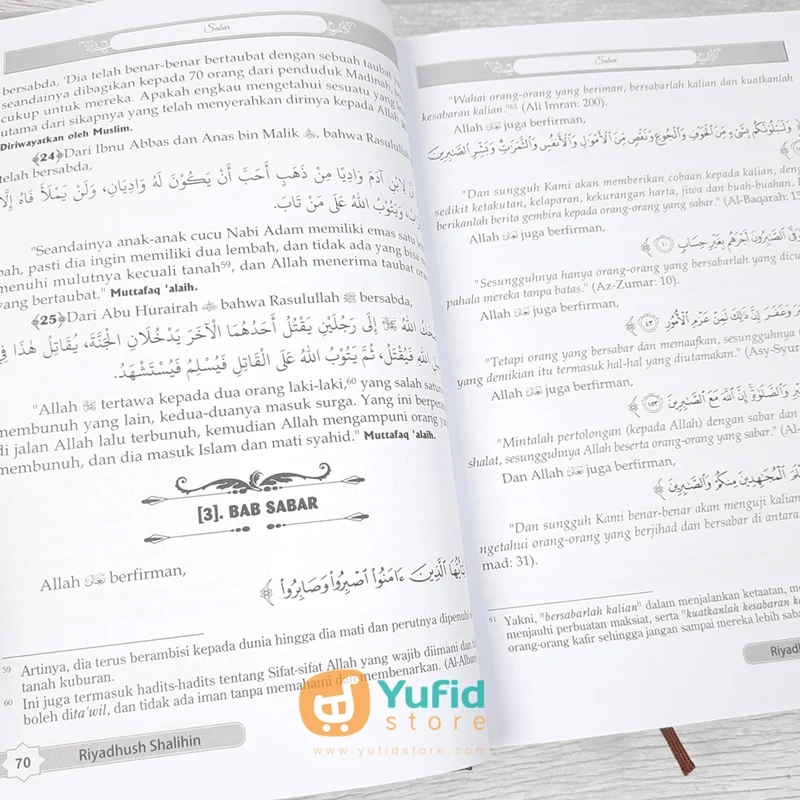 Sabar
bersabda, 'Dia telah benar-benar bertaubat dengan sebuah taubat
seandainya dibagikan kepada 70 orang dari penduduk Madinah,
cukup untuk mereka. Apakah engkau mengetahui sesuatu yang
utama dari sikapnya yang telah menyerahkan dirinya kepada Allah
Diriwayatkan oleh Muslim.
﴾24﴿ Dari Ibnu Abbas dan Anas bin Malik, bahwa Rasulullah
telah bersabda,
أَنَّ لِابْنِ آدَمَ وَادِيًا مِنْ ذَهَبٍ أَحَبَّ أَنْ يَكُوْنَ لَهُ وَادِيَانِ، وَلَنْ يَمْلَأَ فَاهُ إِلَّا
وَيَتُوْبُ اللّٰهُ عَلَى مَنْ تَابَ.
"Seandainya anak-anak cucu Nabi Adam memiliki emas satu
pasti dia ingin memiliki dua lembah, dan tidak ada yang bisa
menuhi mulutnya kecuali tanah⁵⁹, dan Allah menerima taubat
yang bertaubat." Muttafaq 'alaih.
﴾25﴿ Dari Abu Hurairah bahwa Rasulullah ﷺ bersabda,
اللّٰهُ إِلَى رَجُلَيْنِ يَقْتُلُ أَحَدُهُمَا الْآخَرَ يَدْخُلَانِ الْجَنَّةَ، يُقَاتِلُ هٰذَا فِي
اللّٰهِ فَيُقْتَلُ، ثُمَّ يَتُوْبُ اللّٰهُ عَلَى الْقَاتِلِ فَيُسْلِمُ فَيُسْتَشْهَدُ.
"Allah tertawa kepada dua orang laki-laki,⁶⁰ yang salah
membunuh yang lain, kedua-duanya masuk surga. Yang ini
di jalan Allah lalu terbunuh, kemudian Allah mengampuni orang
membunuh, dan dia masuk Islam dan mati syahid." Muttafaq 'alaih.
[3]. BAB SABAR
Allah تعالى berfirman,
ٱلَّذِينَ ءَامَنُوا۟ ٱصْبِرُوا۟ وَصَابِرُوا۟ ﴾
59 Artinya, dia terus berambisi kepada dunia hingga dia mati dan perutnya dipenuhi
tanah kuburan.
60 Ini juga termasuk hadits-hadits tentang Sifat-sifat Allah yang wajib diimani dan
boleh dita'wil, dan tidak ada iman tanpa memahami dan membenarkan. (Al-Albani
70 Riyadhush Shalihin
Sabar
"Wahai orang-orang yang beriman, bersabarlah kalian dan kuatkanlah
kesabaran kalian."⁶¹ (Ali Imran: 200).
Allah تعالى juga berfirman,
وَلَنَبْلُوَنَّكُم بِشَىْءٍ مِّنَ ٱلْخَوْفِ وَٱلْجُوعِ وَنَقْصٍ مِّنَ ٱلْأَمْوَٰلِ وَٱلْأَنفُسِ وَٱلثَّمَرَٰتِ وَبَشِّرِ ٱلصَّٰبِرِينَ
"Dan sungguh Kami akan memberikan cobaan kepada kalian, dengan
sedikit ketakutan, kelaparan, kekurangan harta, jiwa dan buah-buahan.
berikanlah berita gembira kepada orang-orang yang sabar." (Al-Baqarah:
Allah تعالى juga berfirman,
ٱلصَّٰبِرُونَ أَجْرَهُم بِغَيْرِ حِسَابٍ ١٠ ﴾
"Sesungguhnya hanya orang-orang yang bersabarlah yang
pahala mereka tanpa batas." (Az-Zumar: 10).
Allah تعالى juga berfirman,
وَغَفَرَ إِنَّ ذَٰلِكَ لَمِنْ عَزْمِ ٱلْأُمُورِ ٤٣ ﴾
"Tetapi orang yang bersabar dan memaafkan, sesungguhnya
yang demikian itu termasuk hal-hal yang diutamakan."
Allah تعالى juga berfirman,
وَٱلصَّلَوٰةِ إِنَّ ٱللَّهَ مَعَ ٱلصَّٰبِرِينَ ١٥٣ ﴾
"Mintalah pertolongan (kepada Allah) dengan sabar dan
shalat, sesungguhnya Allah beserta orang-orang yang sabar."
Dan Allah تعالى juga berfirman,
ٱلْمُجَٰهِدِينَ مِنكُمْ وَٱلصَّٰبِرِينَ ﴾
"Dan sungguh Kami benar-benar akan menguji kalian
ngetahui orang-orang yang berjihad dan bersabar di antara
mad: 31).
61 Yakni, "bersabarlah kalian" dalam menjalankan ketaatan,
menjauhi perbuatan maksiat, serta "kuatkanlah kesabaran
orang-orang kafir sehingga jangan sampai mereka lebih
Yufid
store
www.yufidstore.com